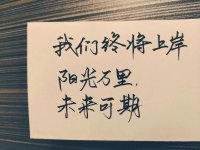 我们终将上岸
阳光万里,
未来可期